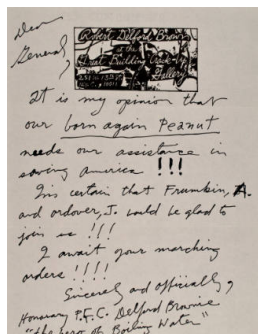 Dear
General,
Robert Delford Brown
at the
Great Building Crack-Up
Gallery
251 W. 13th ST.
It is my opinion that
our born again Peanut
needs our assistance in
saving America !!!
I'm certain that Frumkin, A.
and Ordover, J. would be glad to
join us !!!
I await your marching
orders !!!!
Sincerely and officially,
Honorary P.F.C. Delford Brownie
"the hero of Boiling Water"